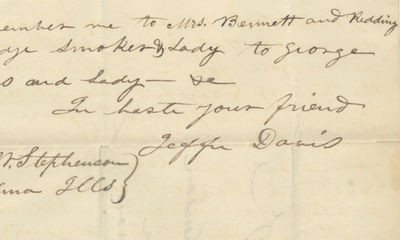 ember me to Mrs. Bennett and Redding
dge Smoker & Lady to George
s and Lady — &c
In haste your friend
Jeffn Davis
W. Stephenson
ena Ills